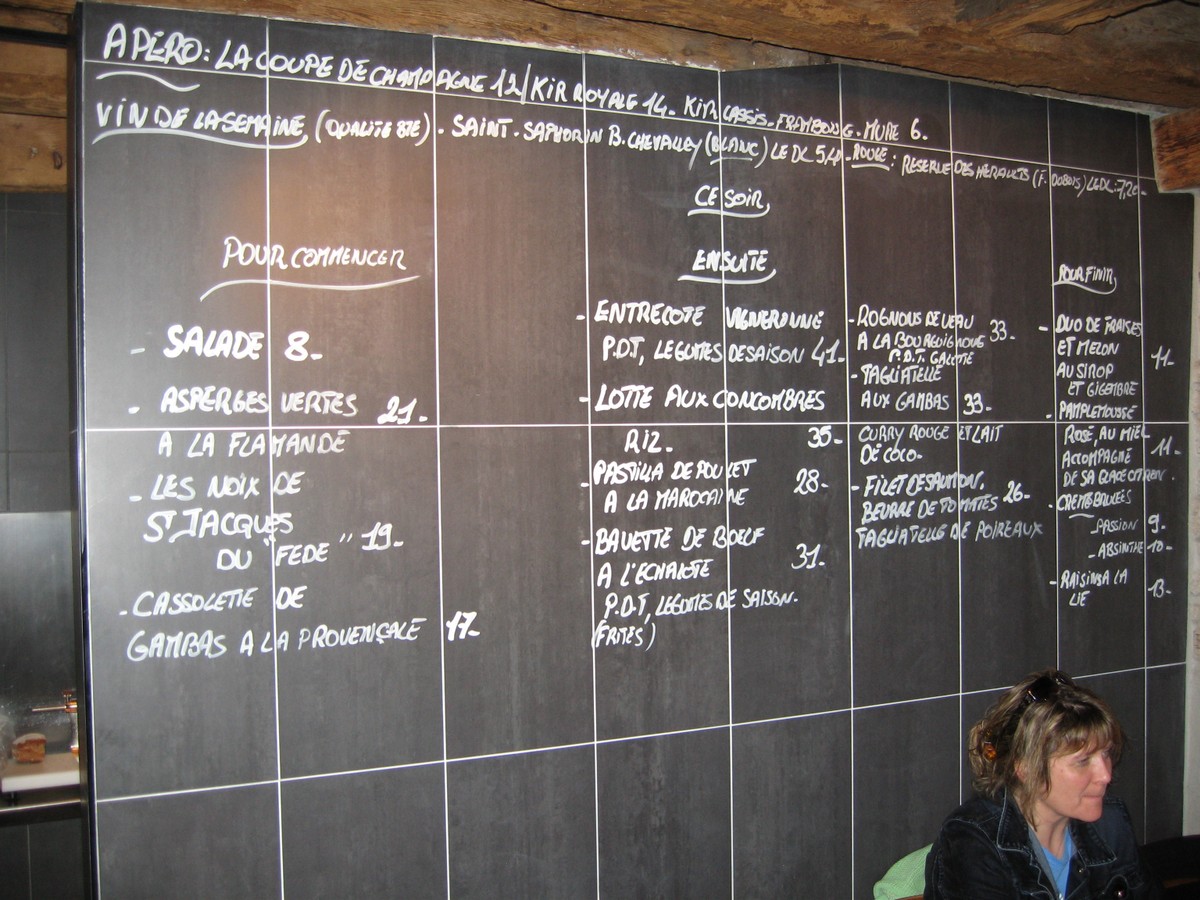 APÉRO: LA COUPE DE CHAMPAGNE 12/ KIR ROYALE 14. KIR, CASSIS. FRAMBOISE. MURE 6.
VIN DE LA SEMAINE, (QUALITE BTE). SAINT. SAPHORIN B. CHEVALLEY (BLANC) LE DL 5,40 ROUGE: RESERVE DES HERAULTS (F. DUBOIS) LE DL: 7,20.-
CE SOIR,
POUR COMMENCER
- SALADE 8.-
- ASPERGES VERTES 21.-
A LA FLAMANDE
- LES NOIX DE
ST JACQUES
DU "FEDE" 19.-
- CASSOLETTE DE
GAMBAS A LA PROVENÇALE 17.-
ENSUITE
- ENTRECOTE VIGNERONNE
P.D.T, LEGUMES DE SAISON 41.-
- LOTTE AUX CONCOMBRES
RIZ. 35.-
- PASTILLA DE POULET
A LA MAROCAINE 28.-
- BAVETTE DE BOEUF
A L'ECHALOTE 31.-
P.D.T, LEGUMES DE SAISON.
(FRITES)
- ROGNONS DE VEAU
A LA BOURGUIGNONNE 33.-
P.D.T. GALETTE
- TAGLIATELLE
AUX GAMBAS 33.-
CURRY ROUGE ET LAIT
DE COCO.
- FILET DE SAUMON,
BEURRE DE TOMATES 26.-
TAGLIATELLE DE POIREAUX
POUR FINIR,
- DUO DE FRAISES
ET MELON 11.-
AU SIROP
ET GIGEMBRE
- PAMPLEMOUSSE
ROSE, AU MIEL 11.-
ACCOMPAGNE
DE SA GLACE CITRON.
- CREMES BRULEES
- PASSION 9.-
- ABSINTHE 10.-
- RAISINS A LA
LIE 13.-